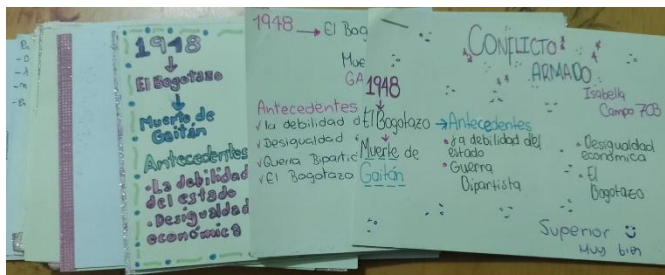 1948
El Bogotazo
Muerte de
Gaitán
Antecedentes
• La debilidad
del estado
• Desigualdad
económica
1948 → El Bog
Mue
GA
Antecedentes
✓ la debilidad d
✓ Desigualdad
✓ Querra Bipartic
✓ El Bogotazo
1948
El Bogotazo
Muerte de
Gaitán
CONFLICTO
ARMADO
Isabella
Campo 703
→ Antecedentes
• La debilidad del
estado
• Guerra
Dipartista
• Desigualdad
económica
• El
Bogotazo
Superior
Muy bien